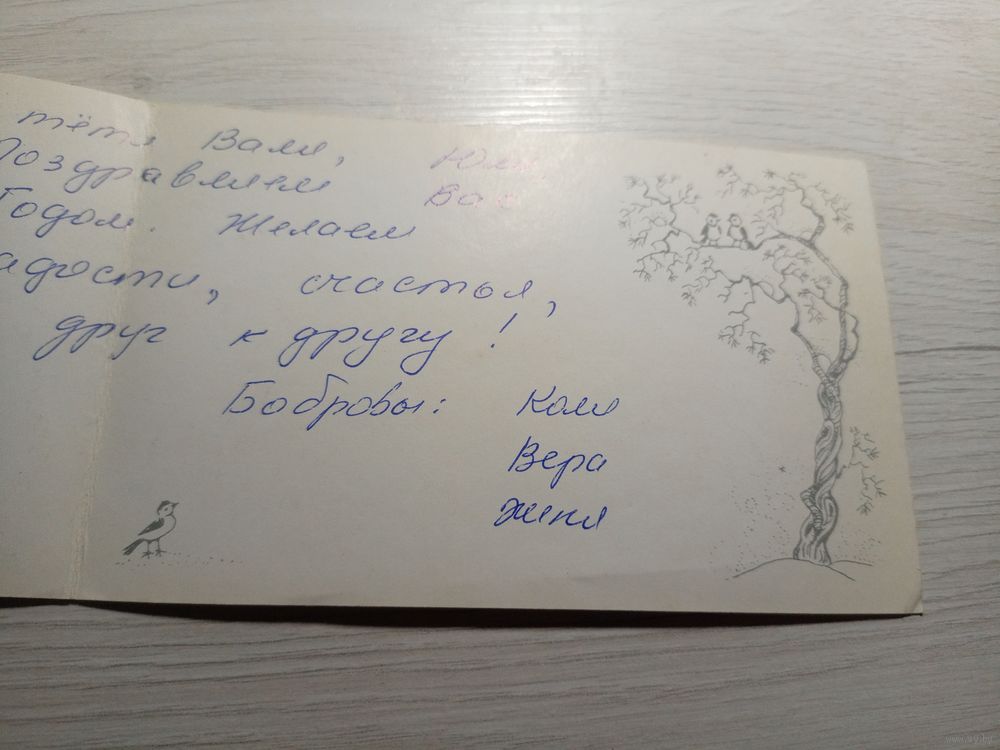 тётя Валя, Юля,
Поздравляем Вас
Годом. Желаем
адости, счастья,
друг к другу!
Бобровы: Коля
Вера
Женя
www.ay.by